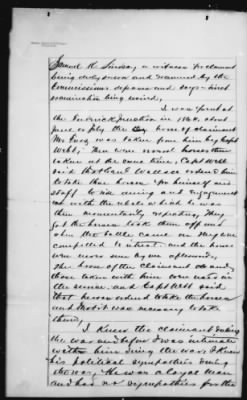 Samuel R. a witness for claimant
being duly sworn and examined by the
Commissioner deposes and says - direct
examination being waived,
I was present at
the Frederick Junction in 1864, about
June or July the horse of claimant
Mr was taken from him by Capt
Webb, There were several horses there
taken at the same time, Capt Webb
said that Genl Wallace ordered him
to take these horses for himself and
staff to use during an engagement
with the rebels which he was
then momentarily expecting, They
got the horses took them off and
when the battle came on they were
compelled to retreat and the horses
were never seen by me afterwards,
The horse of the claimant and
those taken with him were used in
the service and Capt Webb said
that he was ordered to take the horses
and that it was necessary to take
them,
I knew the claimant during
the war and before I was intimate
with him during the war, I knew
his political sympathies during
the war, He was a loyal man
and has not sympathies for the